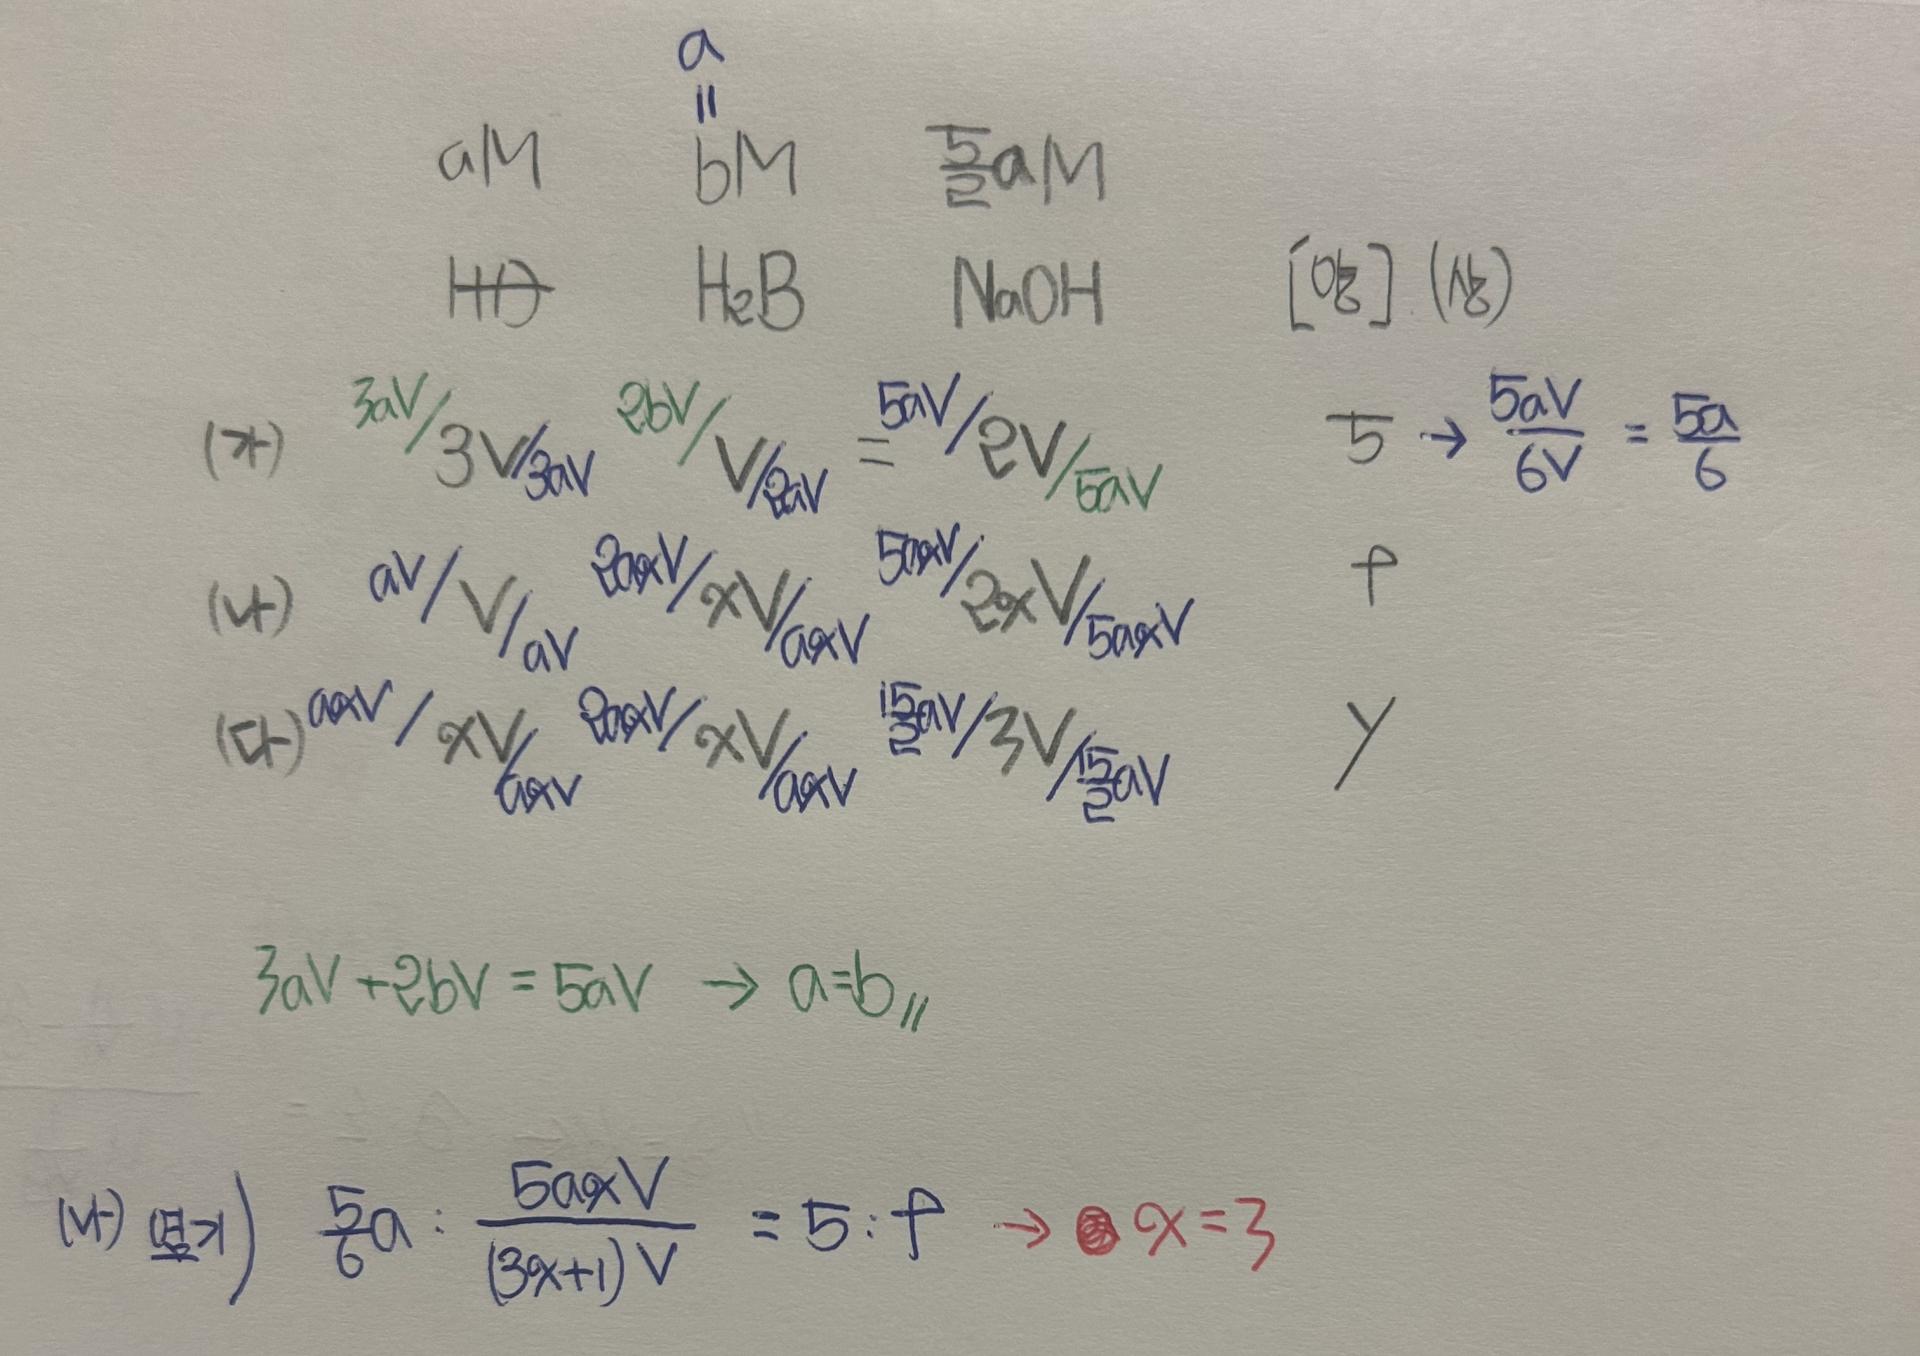 a
=
aM bM 5/2aM
HA H₂B NaOH [양] (상)
(가) 3aV/3V/3aV 2bV/V/2aV = 5aV/2V/5aV 5 → 5aV/6V = 5a/6
(나) aV/V/aV 2axV/xV/axV 5axV/2xV/5axV 9
(다) axV/xV/axV 2axV/xV/axV 15/2aV/3V/15/2aV y
3aV+2bV=5aV → a=b〃
(나) 5/6a : 5axV/(3x+1)V = 5:9 → x=3